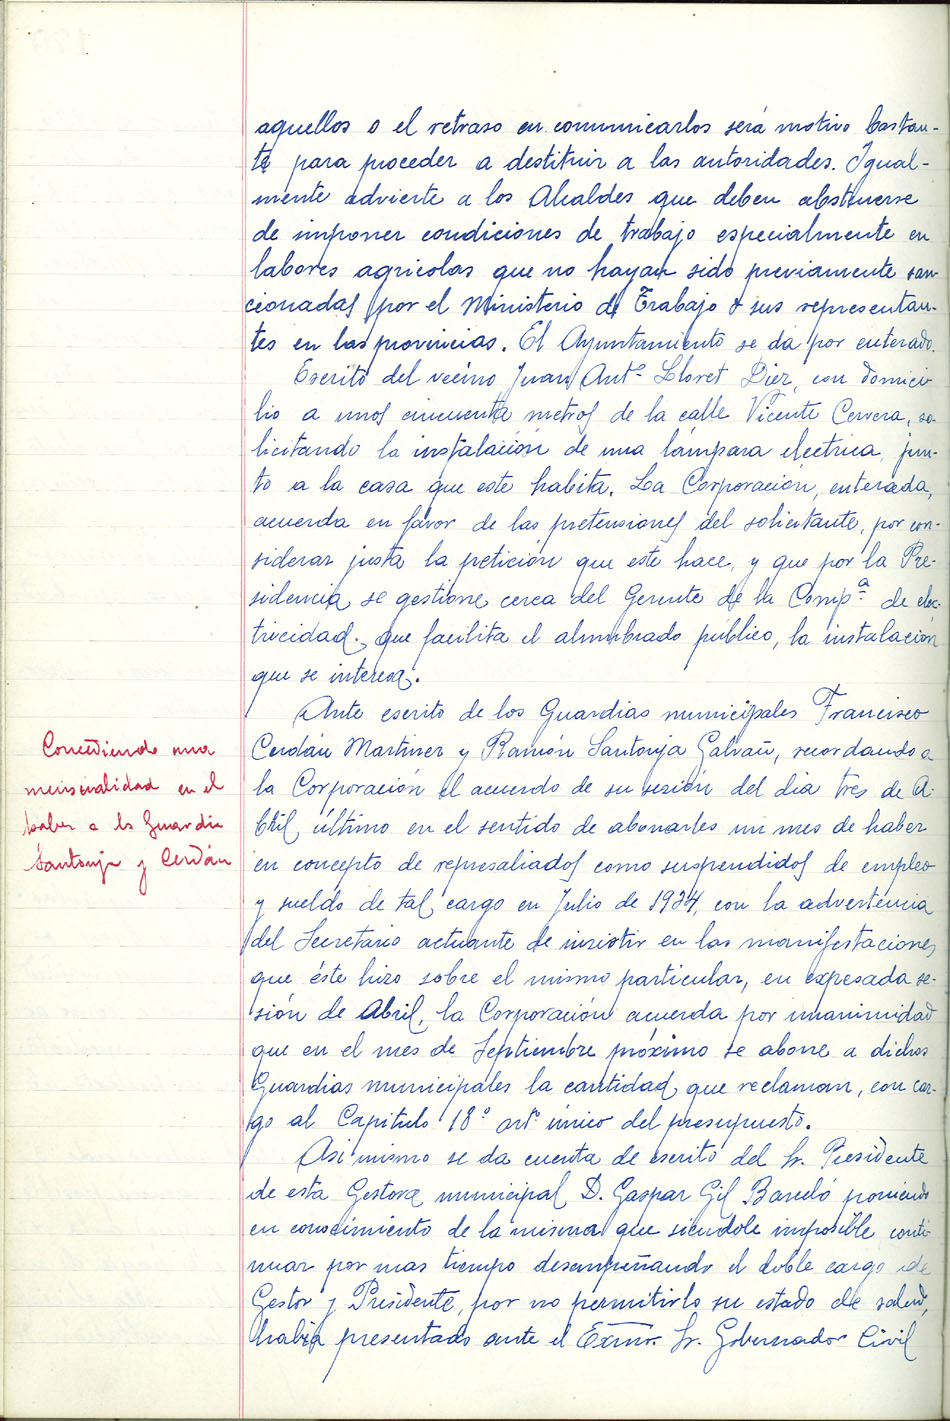 aquellos o el retraso en comunicarlos será motivo bastan-
te para proceder a destituir a las autoridades. Igual-
mente advierte a los Alcaldes que deben abstenerse
de imponer condiciones de trabajo especialmente en
labores agricolas que no hayan sido previamente san-
cionadas por el Ministerio de Trabajo o sus representan-
tes en las provincias. El Ayuntamiento se da por enterado.
Escrito del vecino Juan Antº Lloret Diez, con domici-
lio a unos cincuenta metros de la calle Vicente Cervera, so-
licitando la instalación de una lámpara electrica, jun-
to a la casa que este habita. La Corporación, enterada,
acuerda en favor de las pretensiones del solicitante, por con-
siderar justa la petición que este hace, y que por la Pre-
sidencia se gestione cerca del Gerente de la Compª de elec-
tricidad, que facilita el alumbrado público, la instalación
que se interesa.
Ante escrito de los Guardias municipales Francisco
Cerdán Martinez y Ramón Santonja Galvañ, recordando a
la Corporación el acuerdo de su sesión del dia tres de A-
bril último en el sentido de abonarles un mes de haber
en concepto de represaliados como suspendidos de empleo
y sueldo de tal cargo en Julio de 1934, con la advertencia
del Secretario actuante de insistir en las manifestaciones
que éste hizo sobre el mismo particular, en expesada se-
sión de Abril, la Corporación acuerda por unanimidad
que en el mes de Septiembre próximo se abone a dichos
Guardias municipales la cantidad que reclaman, con car-
go al Capitulo 18º artº único del presupuesto.
Asi mismo se da cuenta de escrito del Sr. Presidente
de esta Gestora municipal D. Gaspar Gil Barceló poniendo
en conocimiento de la misma que siendole imposible conti-
nuar por mas tiempo desempeñando el doble cargo de
Gestor y Presidente, por no permitirlo su estado de salud,
habia presentado ante el Excmo. Sr. Gobernador Civil
Concediendo una
mensualidad en el
haber a los Guardia
Santonja y Cerdán